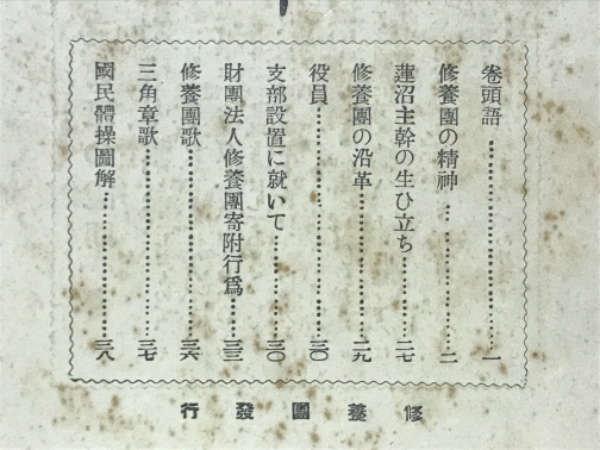 卷頭語…………一
修養團の精神…………二
蓮沼主幹の生ひ立ち…………二七
修養團の沿革…………二九
役員…………三〇
支部設置に就いて…………三〇
財團法人修養團寄附行爲…………三三
修養團歌…………三六
三角章歌…………三七
國民體操圖解…………三八
行發團養修